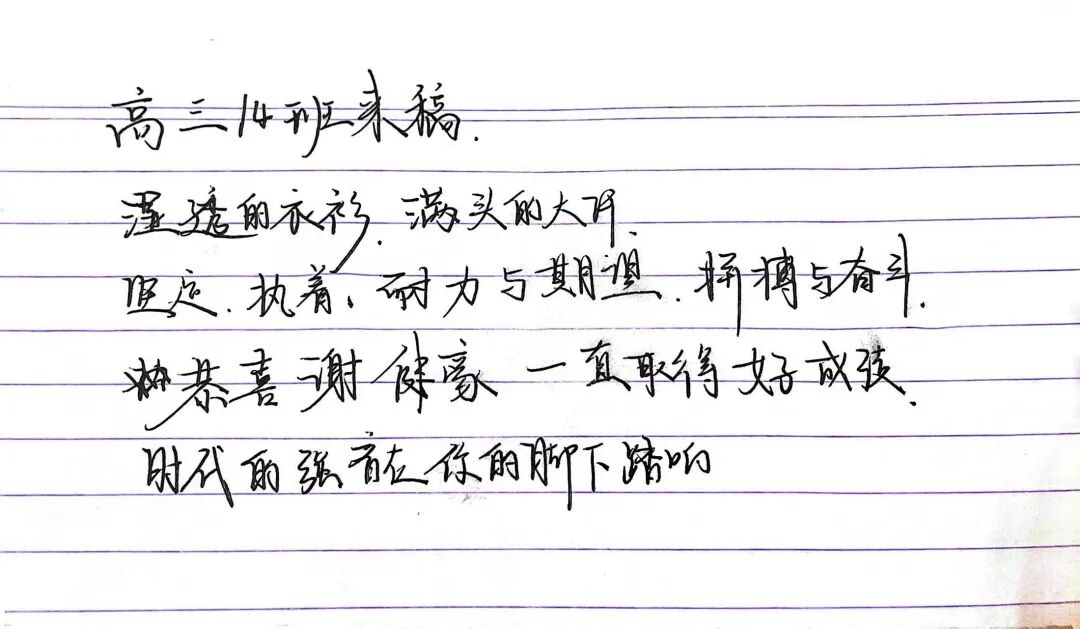 高三14班来稿.
湿透的衣衫.满头的大汗.
坚定.执着、耐力与期望.拼搏与奋斗.
恭喜谢健豪一直取得好成绩.
时代的强音在你的脚下踏响